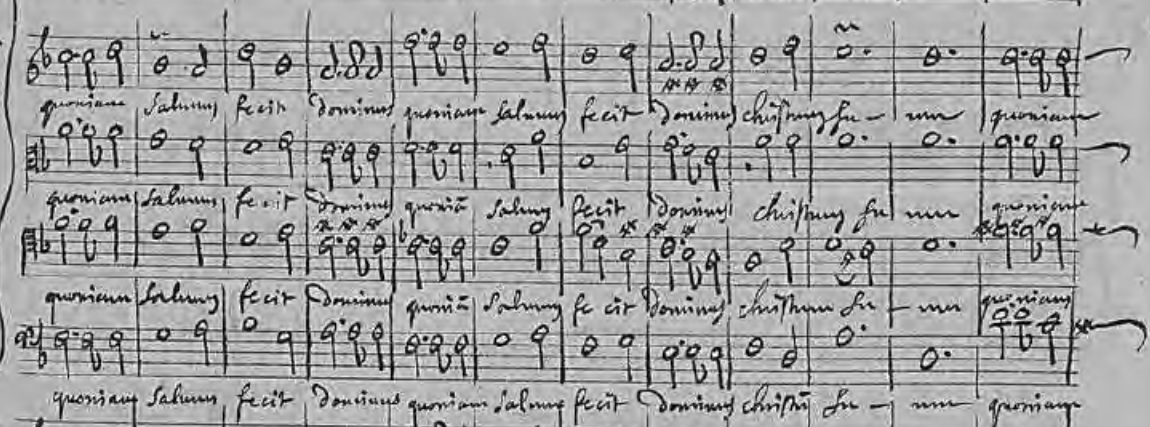 quoniam salvum fecit dominus quoniam salvum fecit dominus christum su - um quoniam
quoniam salvum fecit dominus quoniã salvum fecit dominus christum su um quoniam
quoniam salvum fecit dominus quoniã salvum fe cit dominus christum su - um quoniam
quoniam salvum fecit dominus quoniam salvum fecit dominus christũ su - um quoniam